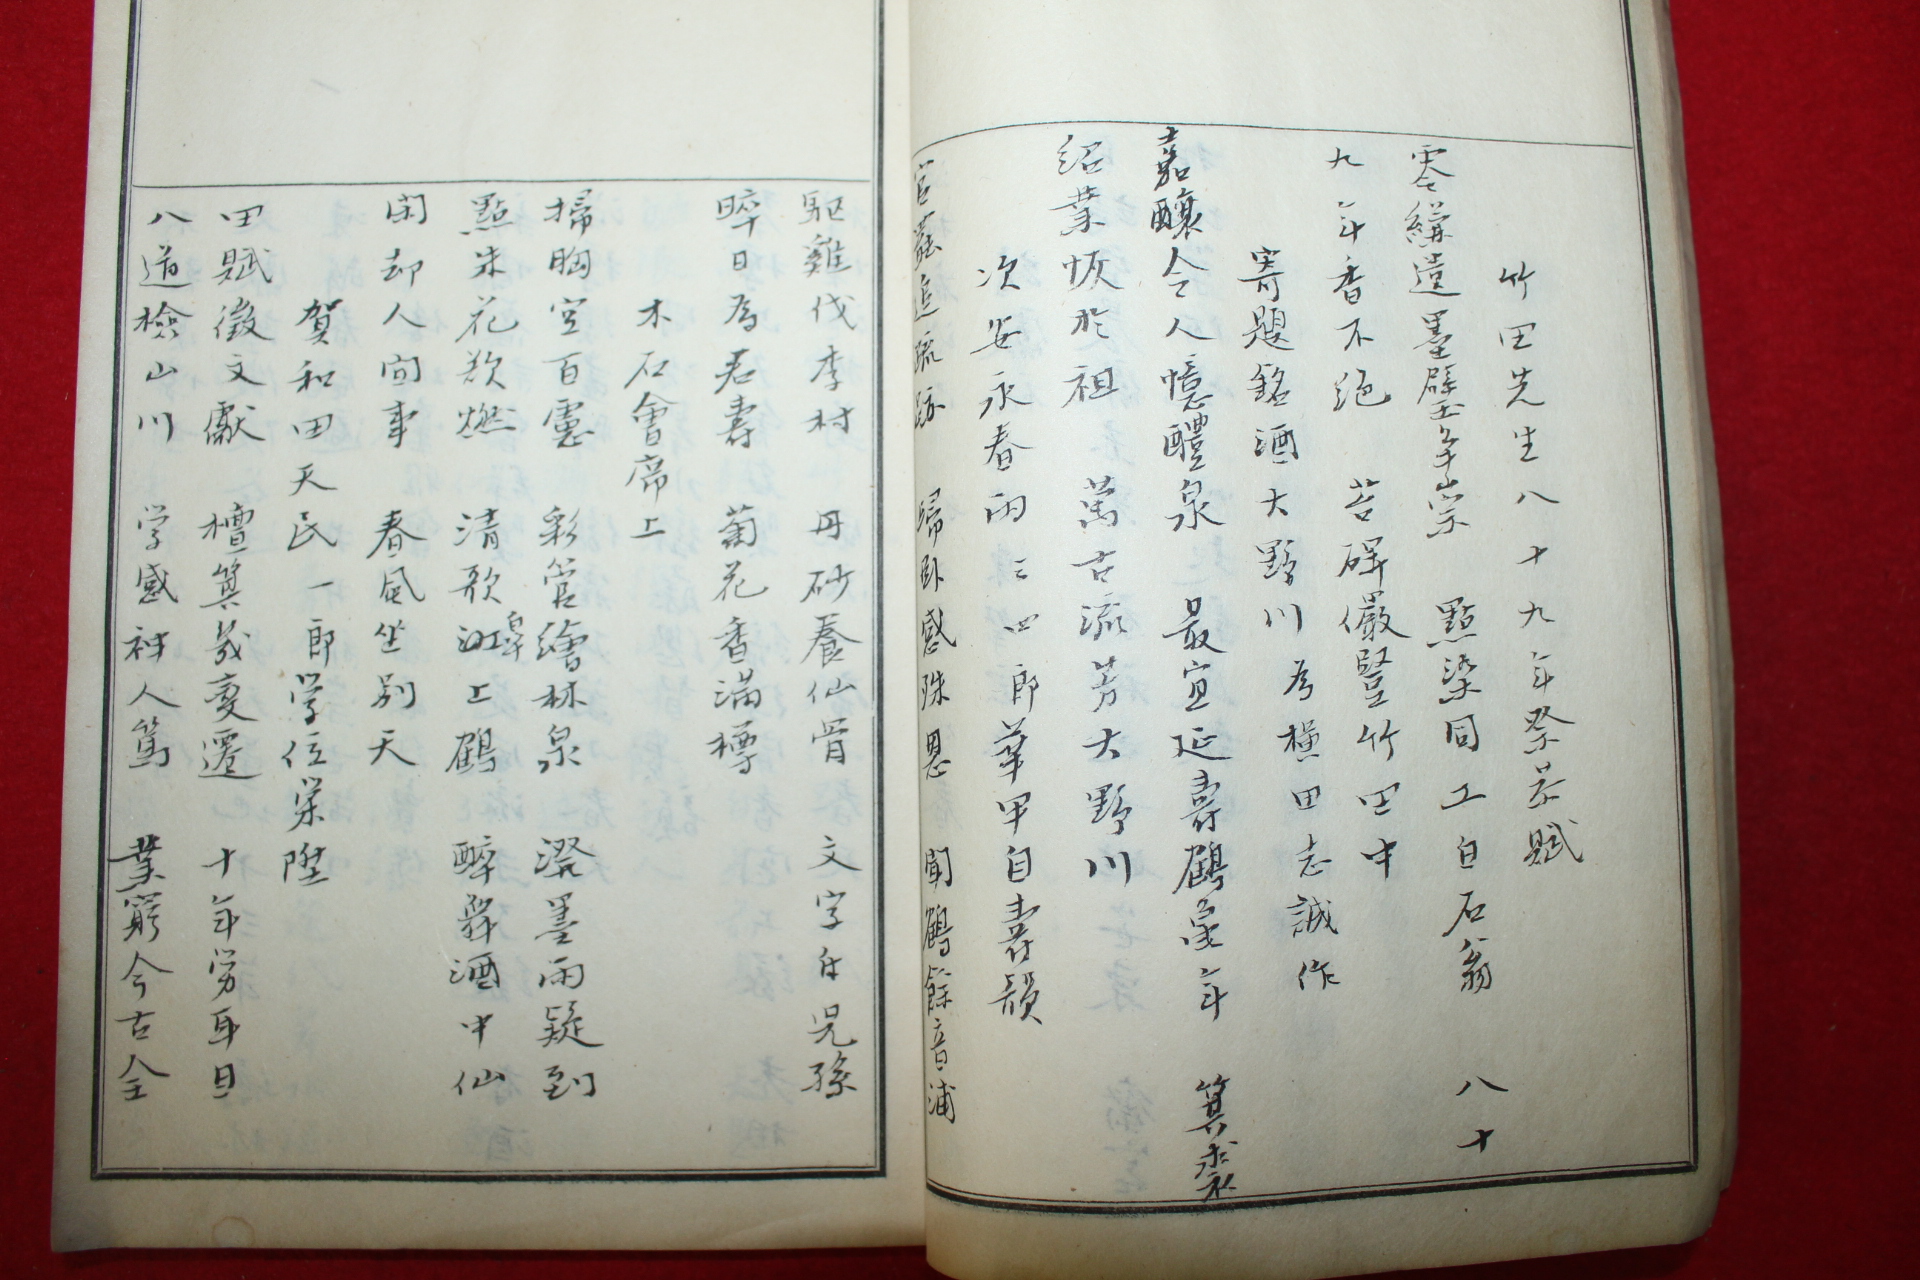 竹田先生八十九年祭恭賦
零縑遺墨壁年崇 點染同工白石翁 八十
九年香不絶 苔碑儼竪竹田中
寄題銘酒大野川 為横田志誠作
嘉釀令人憶醴泉 最宜延壽鶴年 箕裘
紹業恢於祖 萬古流芳大野川
次安永春雨三四郎華甲自壽韻
官 追疏 歸臥感殊恩 聞鶴餘音浦
駈雞伐李村 丹砂養仙骨 文字付兒孫
晬日為君壽 菊花香滿樽
木石會席上
掃胸空百慮 彩管繪林泉 潑墨雨疑到
點朱花欲燃 清歌江皐上鶴 醉舞酒中仙
閑却人間事 春風坐別天
賀和田天民一郎学位栄陞
田賦徵文獻 檀箕幾変遷 十年労耳目
八道檢山川 学感神人篤 業窮今古全